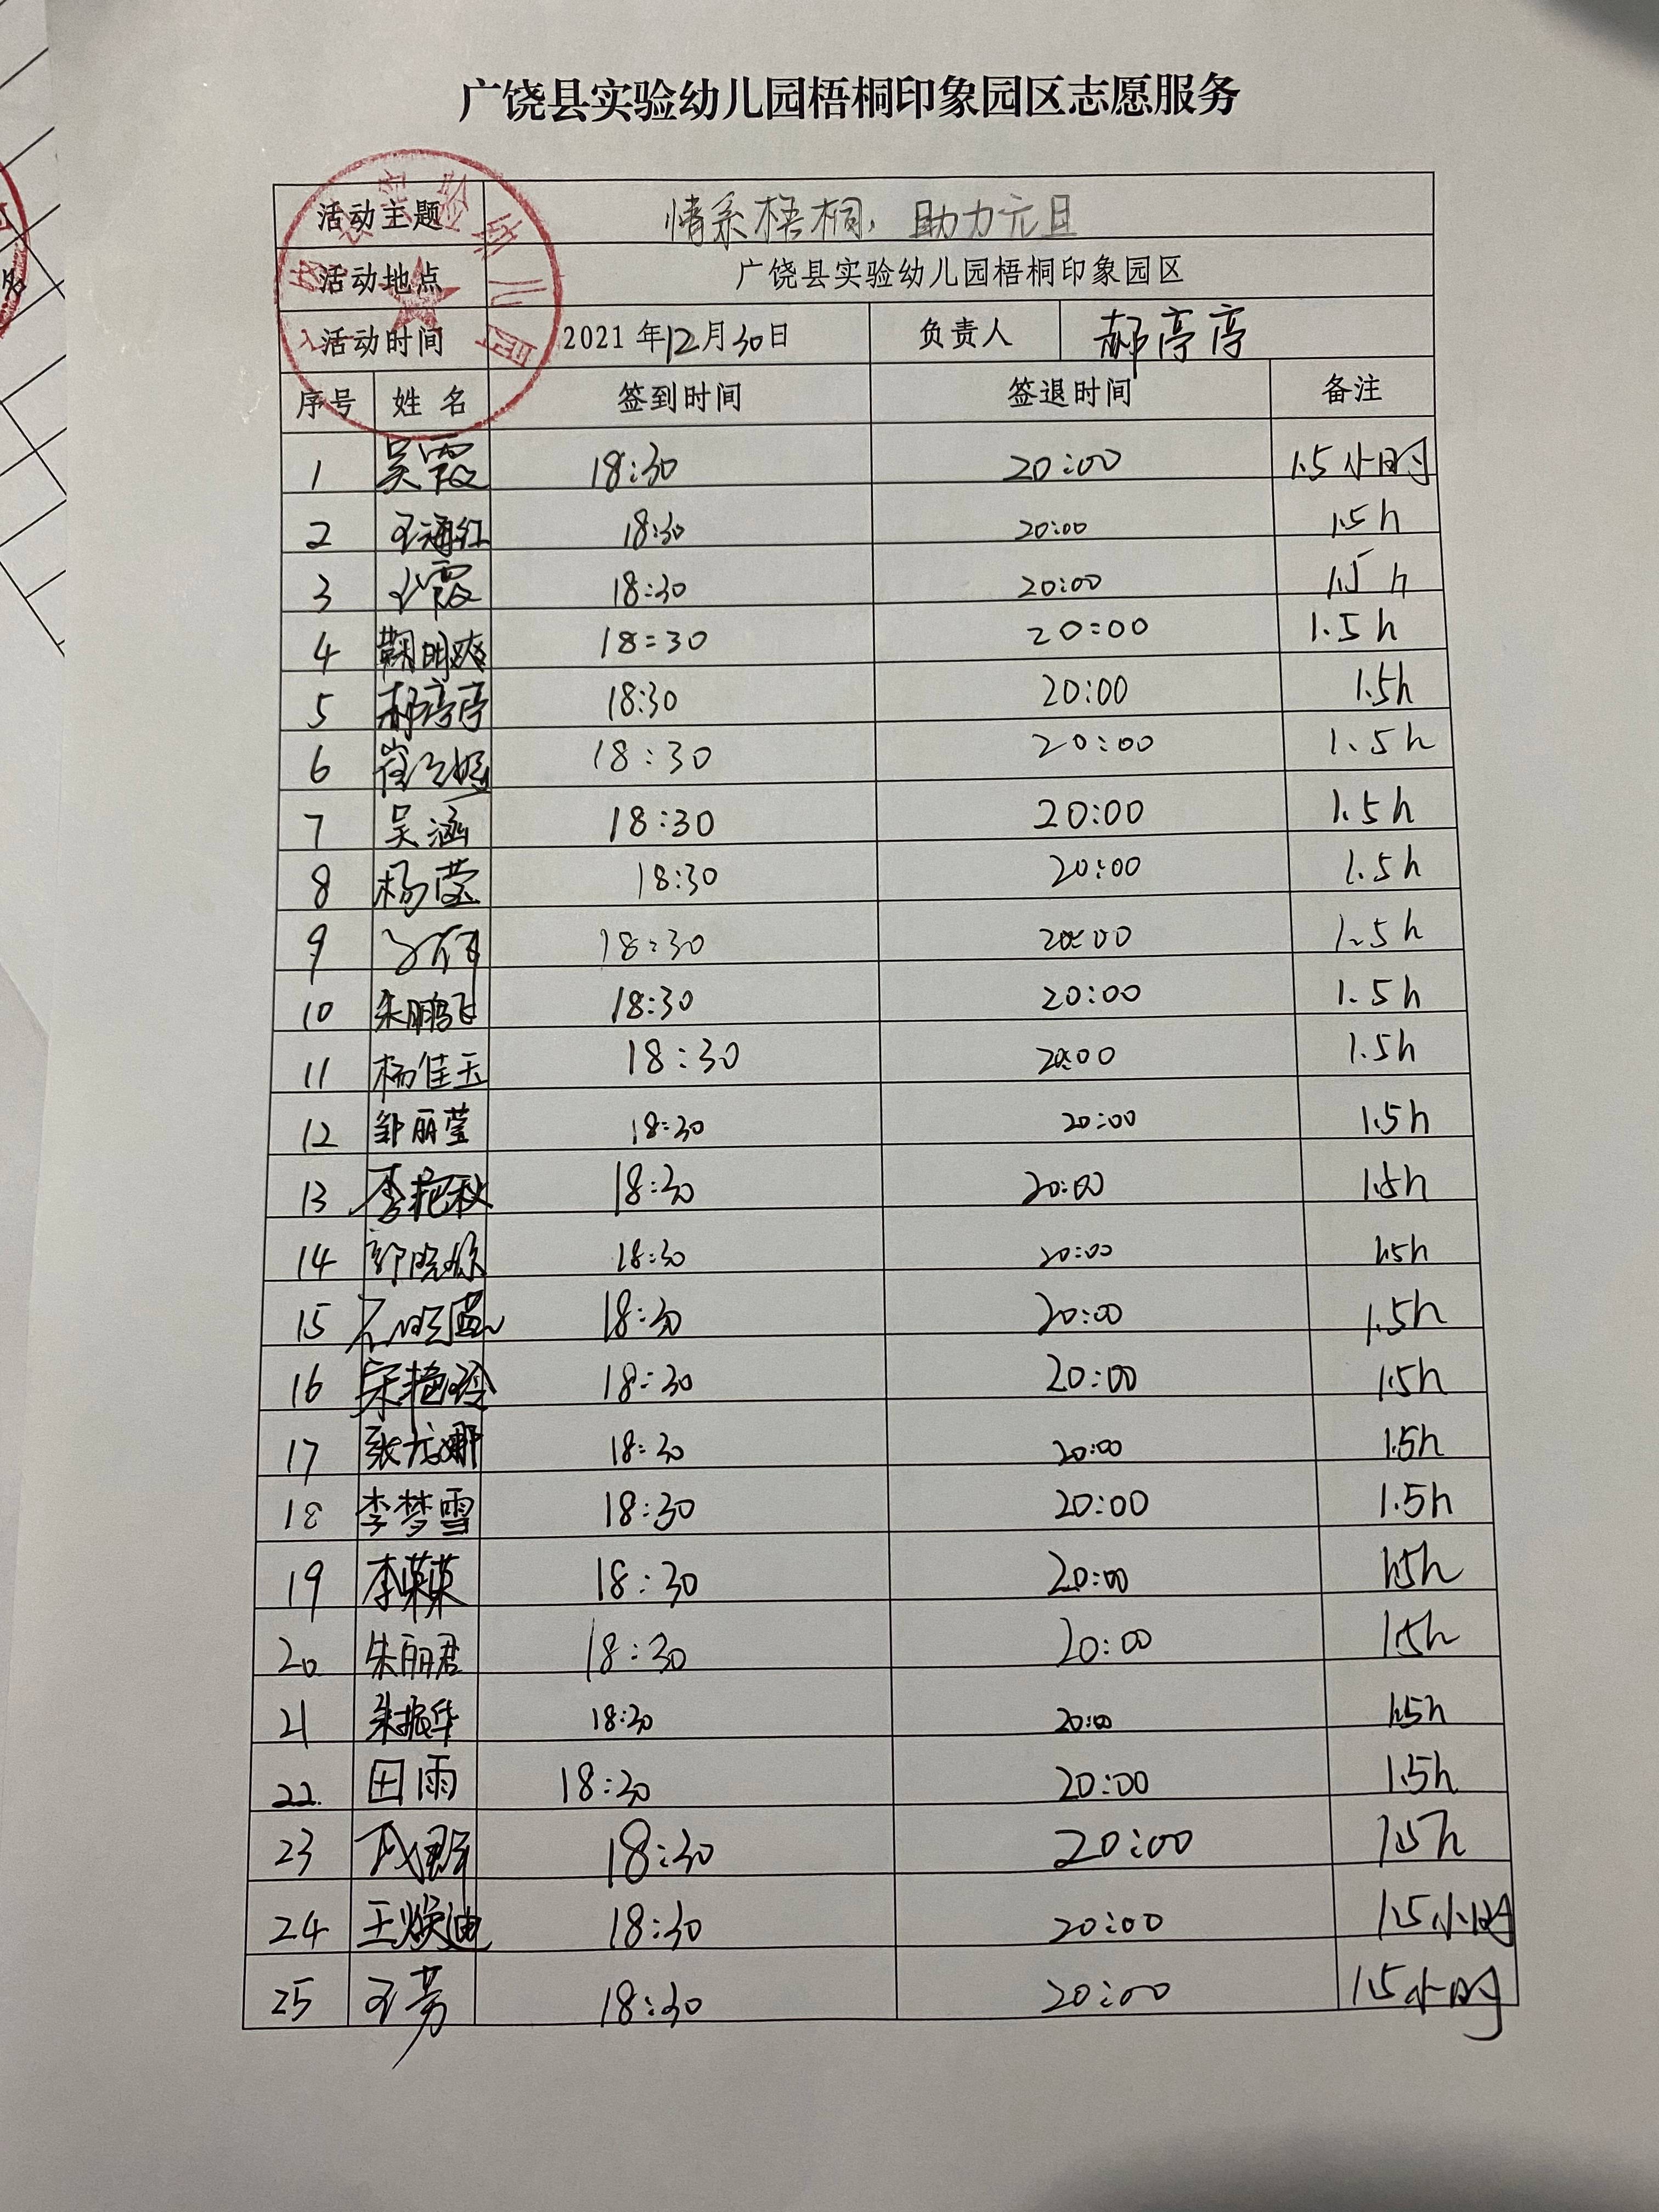 广饶县实验幼儿园梧桐印象园区志愿服务
活动主题 情系梧桐，助力元旦
活动地点 广饶县实验幼儿园梧桐印象园区
活动时间 2021年12月30日 负责人 郝亭亭
序号 姓名 签到时间 签退时间 备注
1 吴霞 18:30 20:00 1.5小时
2 王海红 18:30 20:00 1.5h
3 王霞 18:30 20:00 1.5h
4 鞠明爽 18:30 20:00 1.5h
5 郝亭亭 18:30 20:00 1.5h
6 18:30 20:00 1.5h
7 吴涵 18:30 20:00 1.5h
8 杨莹 18:30 20:00 1.5h
9 18:30 20:00 1.5h
10 朱鹏飞 18:30 20:00 1.5h
11 杨佳玉 18:30 20:00 1.5h
12 邹丽莹 18:30 20:00 1.5h
13 李艳秋 18:30 20:00 1.5h
14 18:30 20:00 1.5h
15 18:30 20:00 1.5h
16 宋艳玲 18:30 20:00 1.5h
17 18:30 20:00 1.5h
18 李梦雪 18:30 20:00 1.5h
19 李英英 18:30 20:00 1.5h
20 朱丽君 18:30 20:00 1.5h
21 朱振华 18:30 20:00 1.5h
22. 田雨 18:30 20:00 1.5h
23 18:30 20:00 1.5h
24 王焕迪 18:30 20:00 1.5小时
25 王芳 18:30 20:00 1.5小时